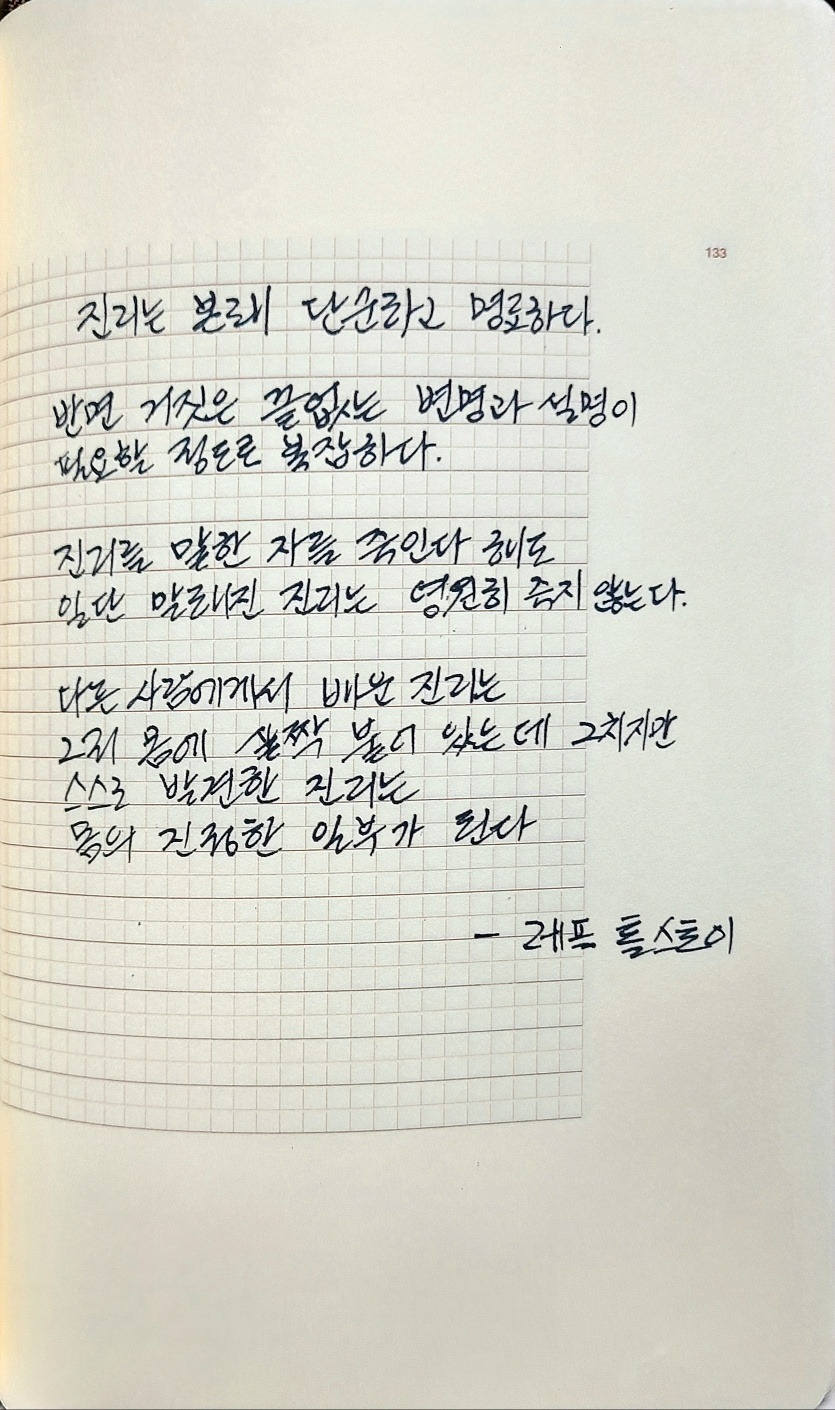 133
진리는 본래 단순하고 명료하다.
반면 거짓은 끝없는 변명과 설명이
필요할 정도로 복잡하다.
진리를 말한 자를 죽인다 해도
일단 말해진 진리는 영원히 죽지 않는다.
다른 사람에게서 배운 진리는
그저 몸에 살짝 붙어 있는데 그치지만
스스로 발견한 진리는
몸의 진정한 일부가 된다
- 레프 톨스토이